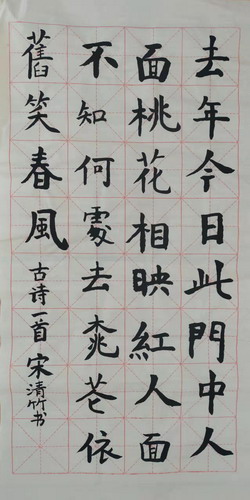 去年今日此門中人
面桃花相映紅人面
不知何處去桃花依
舊笑春風古诗一首宋清竹书